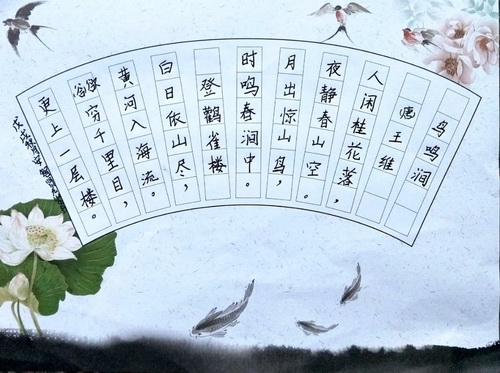 鸟鸣涧
唐王维
人闲桂花落，
夜静春山空。
月出惊山鸟，
时鸣春涧中。
登鹳雀楼
白日依山尽，
黄河入海流。
欲穷千里目，
更上一层楼。